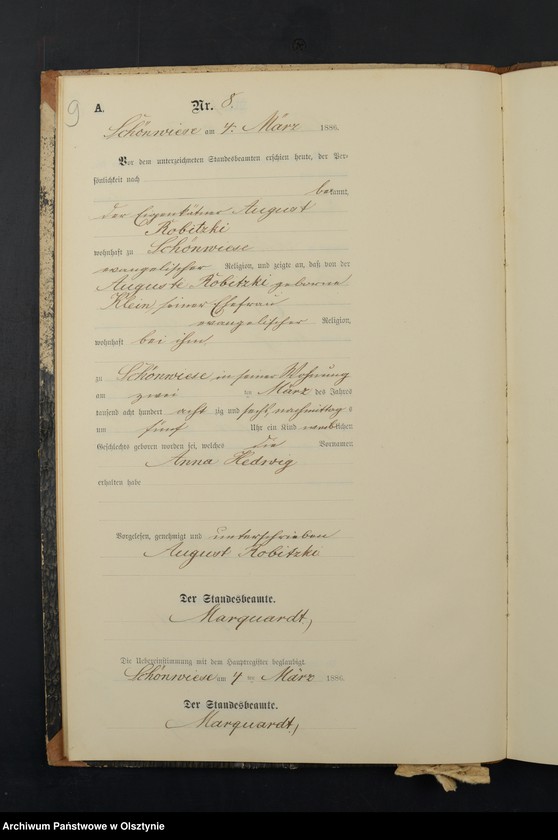 9
A. Nr. 8.
Schönwiese am 4. März 1886.
Vor dem unterzeichneten Standesbeamten erschien heute, der Per-
sönlichkeit nach
bekannt,
der Eigenkätner August
Robitzki
wohnhaft zu Schönwiese
evangelischer Religion, und zeigte an, daß von der
Auguste Robitzki geborene
Klein, seiner Ehefrau
evangelischer Religion,
wohnhaft bei ihm
zu Schönwiese in seiner Wohnung
am zwei ten März des Jahres
tausend acht hundert acht zig und sechs, nachmittag s
um fünf Uhr ein Kind weiblichen
Geschlechts geboren worden sei, welches die Vornamen
Anna Hedwig
erhalten habe
Vorgelesen, genehmigt und unterschrieben
August Robitzki
Der Standesbeamte.
Marquardt,
Die Uebereinstimmung mit dem Hauptregister beglaubigt.
Schönwiese am 4 ten März 1886.
Der Standesbeamte.
Marquardt,
Archiwum Państwowe w Olsztynie